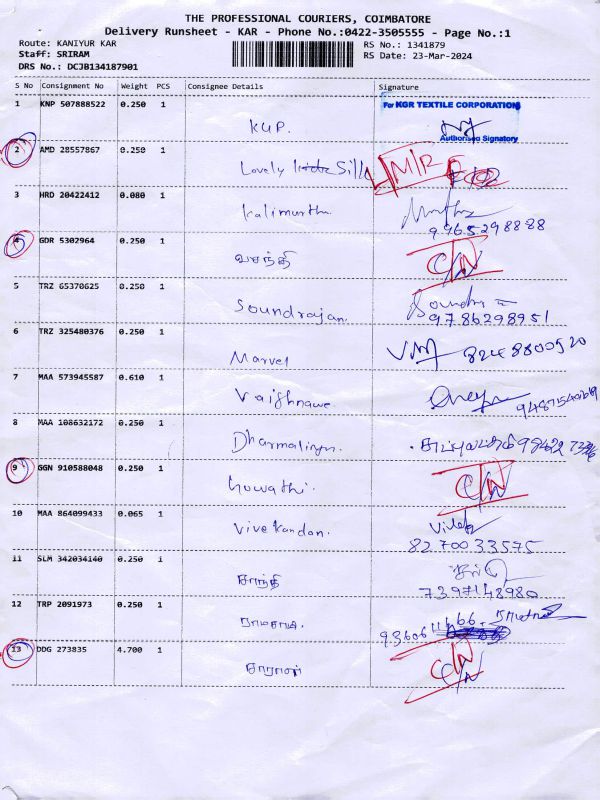 THE PROFESSIONAL COURIERS, COIMBATORE
Delivery Runsheet - KAR - Phone No.:0422-3505555 - Page No.:1
Route: KANIYUR KAR RS No.: 1341879
Staff: SRIRAM RS Date: 23-Mar-2024
DRS No.: DCJB134187901
S No Consignment No Weight PCS Consignee Details Signature
1 KNP 507888522 0.250 1 For KGR TEXTILE CORPORATION
KUP.
Authorised Signatory
2 AMD 28557867 0.250 1
Lovely
3 HRD 20422412 0.080 1
Kalimurthu
9965298888
4 GDR 5302964 0.250 1 C/N
வசந்தி
5 TRZ 65370625 0.250 1
Soundrajan. 9786298951
6 TRZ 325480376 0.250 1
Marvel 8248800520
7 MAA 573945587 0.610 1
Vaishnave
8 MAA 108632172 0.250 1
9 GGN 910588048 0.250 1 C/N
Gowathi.
10 MAA 864099433 0.065 1
Vivekandan. 8270033575
11 SLM 342034140 0.250 1
சாந்தி 7397148980
12 TRP 2091973 0.250 1
13 DDG 273835 4.700 1 C/N